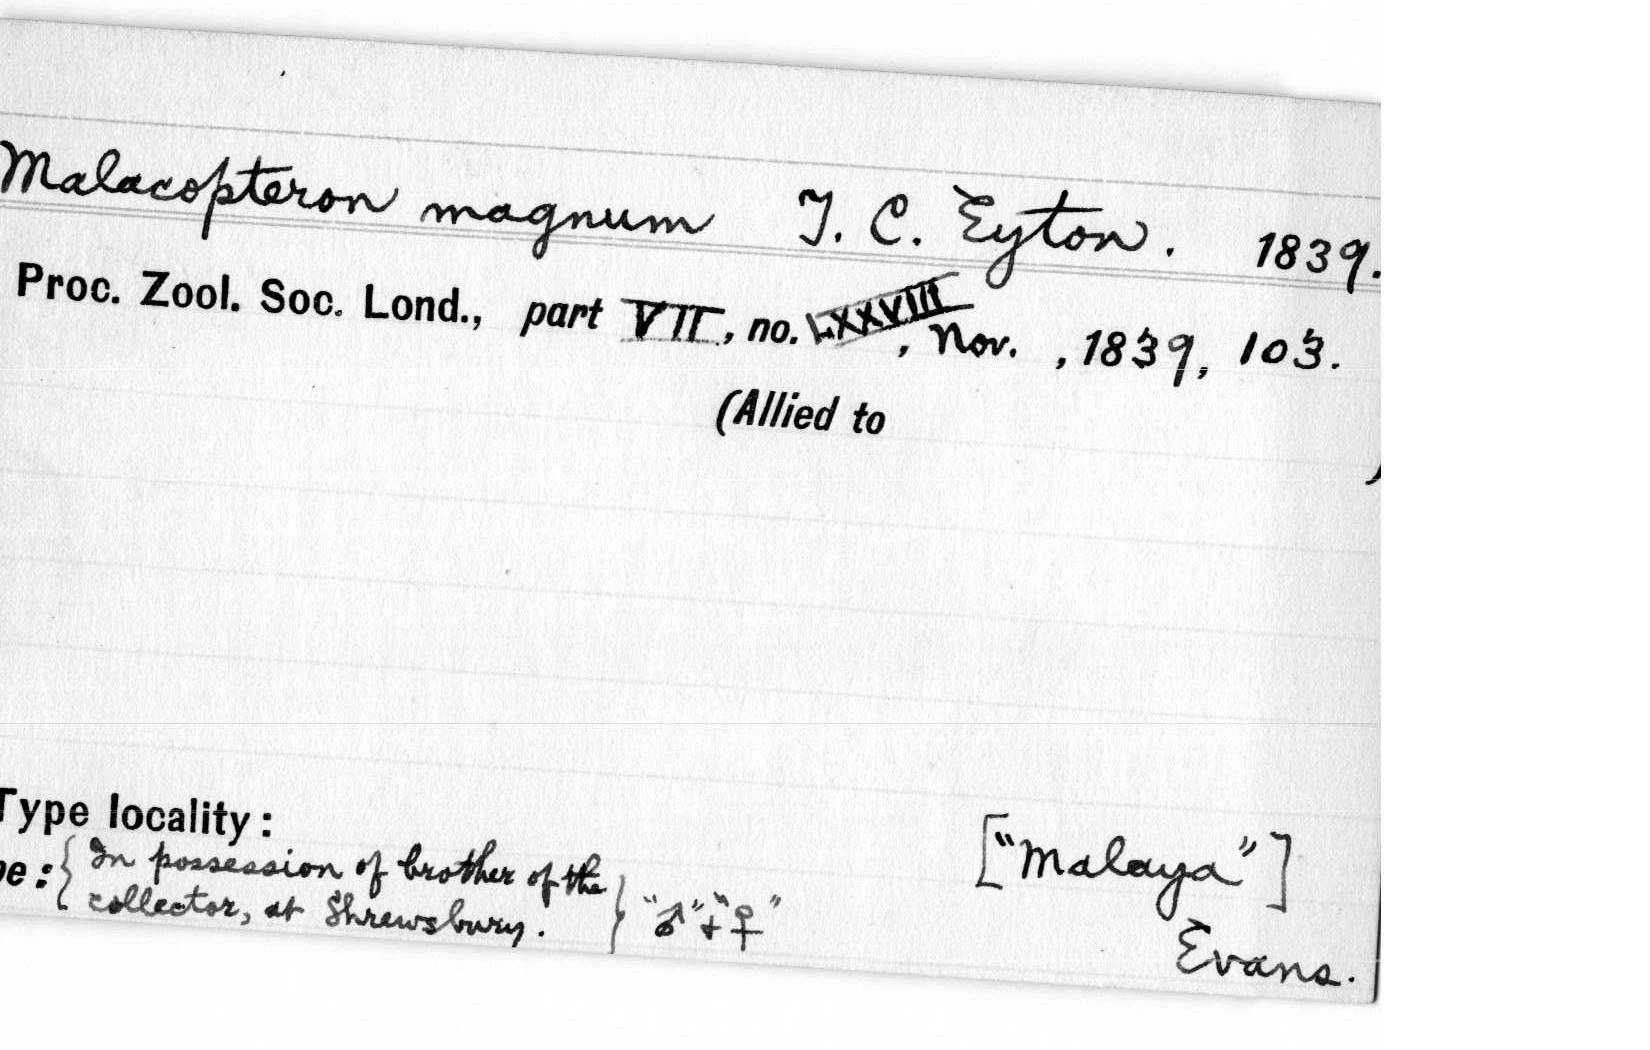 Malacopteron magnum T. C. Eyton. 1839.
Proc. Zool. Soc. Lond., part VII, no. LXXVIII, Nov. , 1839, 103.
(Allied to )
Type locality: ["Malaya"]
pe: { In possession of brother of the
collector, at Shrewsbury. } "♂" + "♀" Evans.